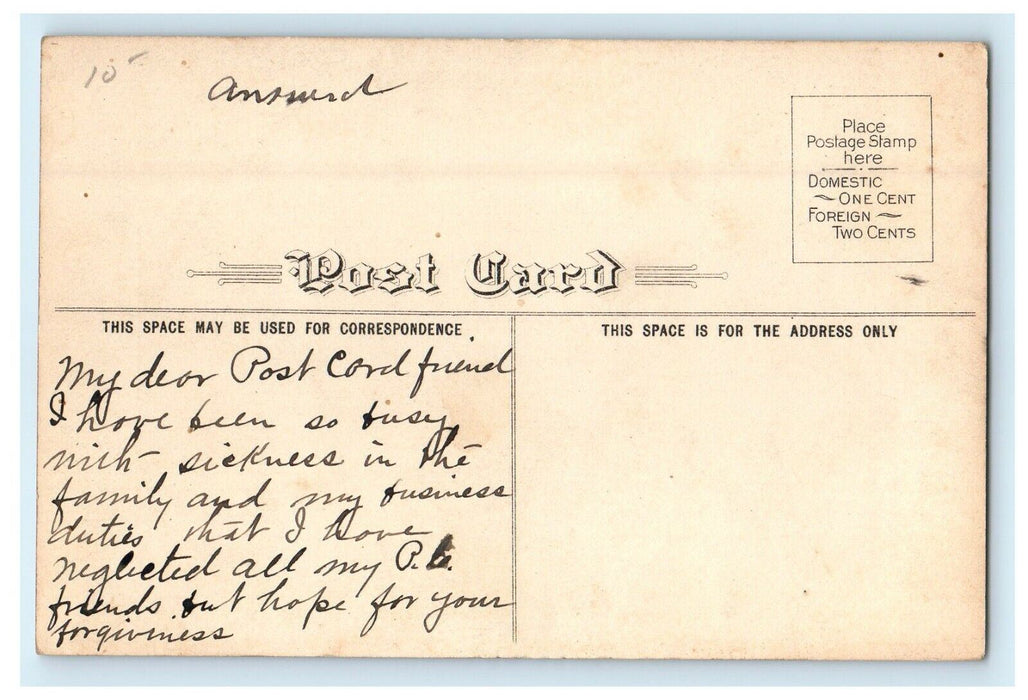 10
Answerd
Place
Postage Stamp
here
DOMESTIC
ONE CENT
FOREIGN
TWO CENTS
Post Card
THIS SPACE MAY BE USED FOR CORRESPONDENCE
THIS SPACE IS FOR THE ADDRESS ONLY
My dear Post Card friend
I have been so busy
with sickness in the
family and my business
duties that I have
neglected all my P.C.
friends but hope for your
forgiviness